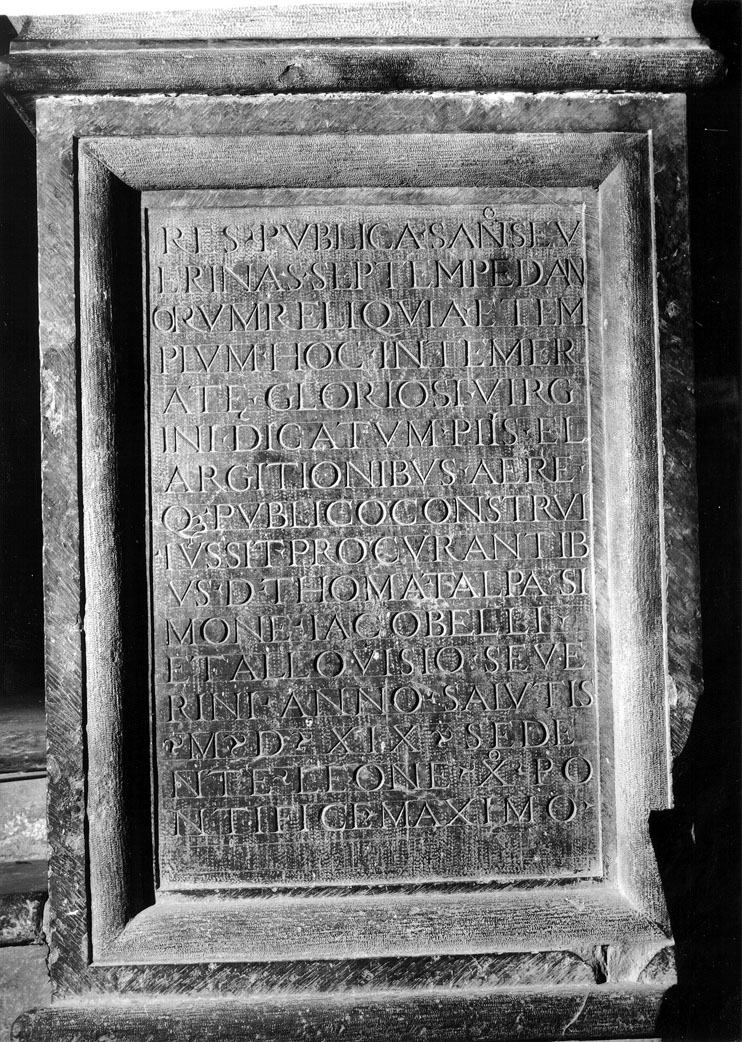 RES·PVBLICA·SAN̊SEV
ERINAS·SEPTEMPEDAN
ORVM RELIQVIAE TEM
PLVM·HOC·INTEMER
ATE·GLORIOSE·VIRG
INI·DICATVM·PIIS·EL
ARGITIONIBVS·AERE·
Q·PVBLICO CONSTRVI
IVSSIT·PROCVRANTIB
VS·D·THOMA TALPA·SI
MONE·IACOBELLI·
ET ALLOVISIO SEVE
RINI·ANNO·SALVTIS
·M·D·XIX·SEDE
NTE·LEONE·X̊·PO
NTIFICE·MAXIMO·